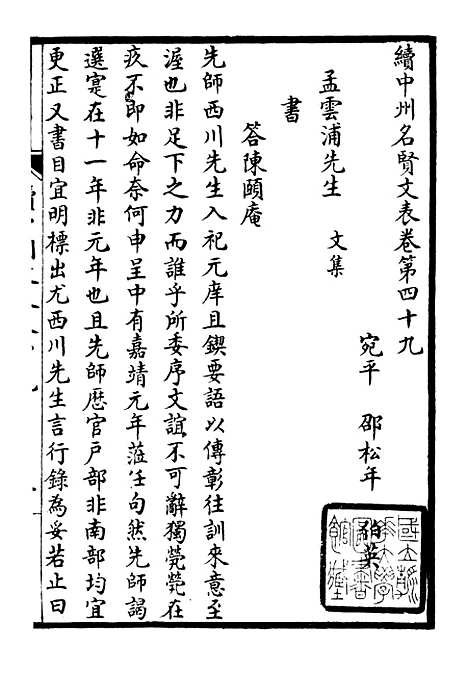 續中州名賢文表卷第四十九
宛平 邵松年 伯英
孟雲浦先生 文集
書
答陳頤庵
先師西川先生入祀元庠且鍥要語以傳彰往訓來意至
渥也非足下之力而誰乎所委序文誼不可辭獨煢煢在
疚不即如命奈何申呈中有嘉靖元年蒞任句然先師謁
選寔在十一年非元年也且先師歷官戶部非南部均宜
更正又書目宜明標出尤西川先生言行錄為妥若止曰